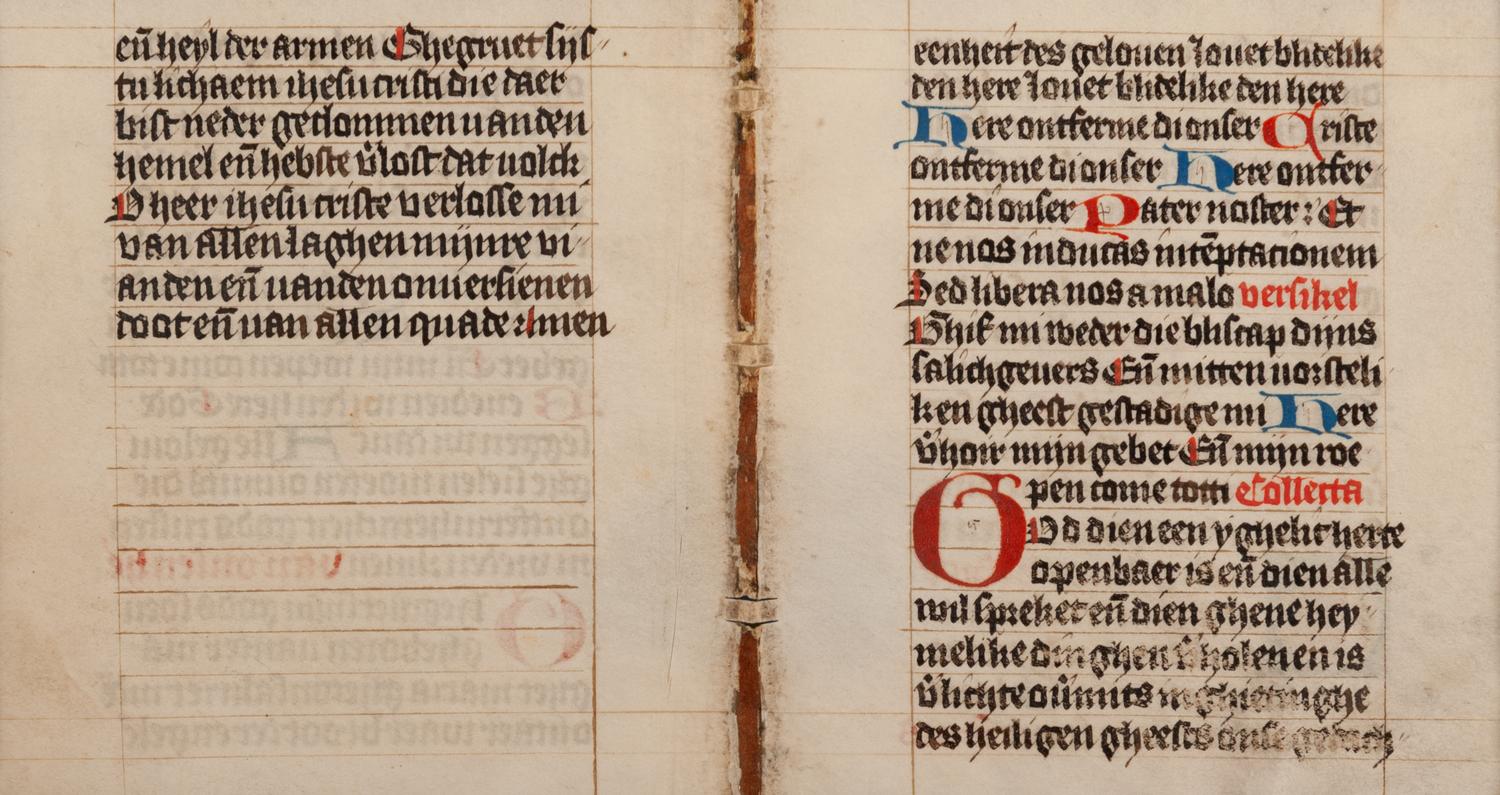 en̄ heyl der armen Ghegruet sijs-
tu lichaem ihesu cristi die daer
bist neder geclommen uanden
hemel en̄ hebste v̄lost dat uolck
O heer ihesu criste verlosse mi
van allen laghen mijnre vi-
anden en̄ uanden onuersienen
doot en̄ uan allen quade Amen
eenheit des gelouen louet blidelike
den here louet blidelike den here
Here ontferme di onser Criste
ontferme di onser Here ontfer-
me di onser Pater noster: Et
ne nos inducas in tēptationem
Sed libera nos a malo versikel
Ghif mi weder die bliscap dijns
salichgeuers En̄ mitten vorsteli-
ken gheest gestadige mi Here
v̄hoir mijn gebet En̄ mijn roe
pen come totti Collecta
O God dien een yghelic herte
openbaer is en̄ dien alle
wil spreket en̄ dien ghene hey-
melike dinghen v̄holen en is
v̄lichte ouīmits inghietinghe
des heiligen gheests onse gedach-